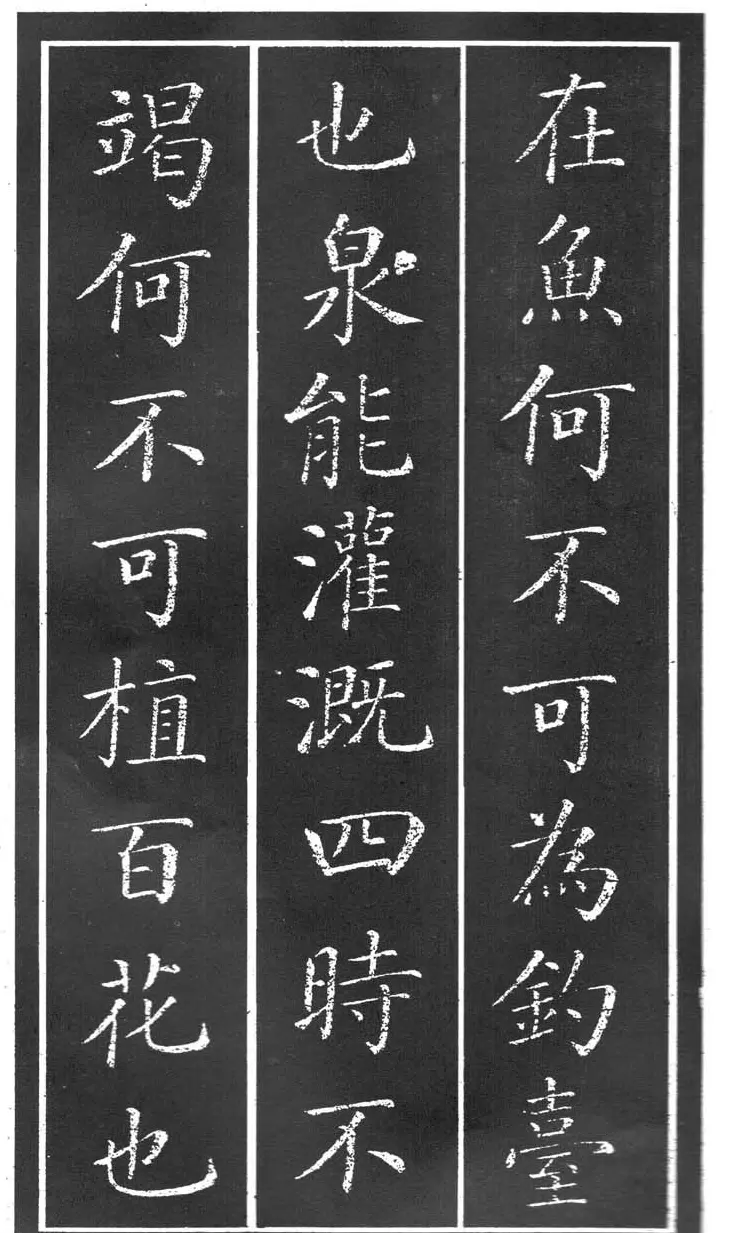 在魚何不可為釣臺
也泉能灌溉四時不
竭何不可植百花也